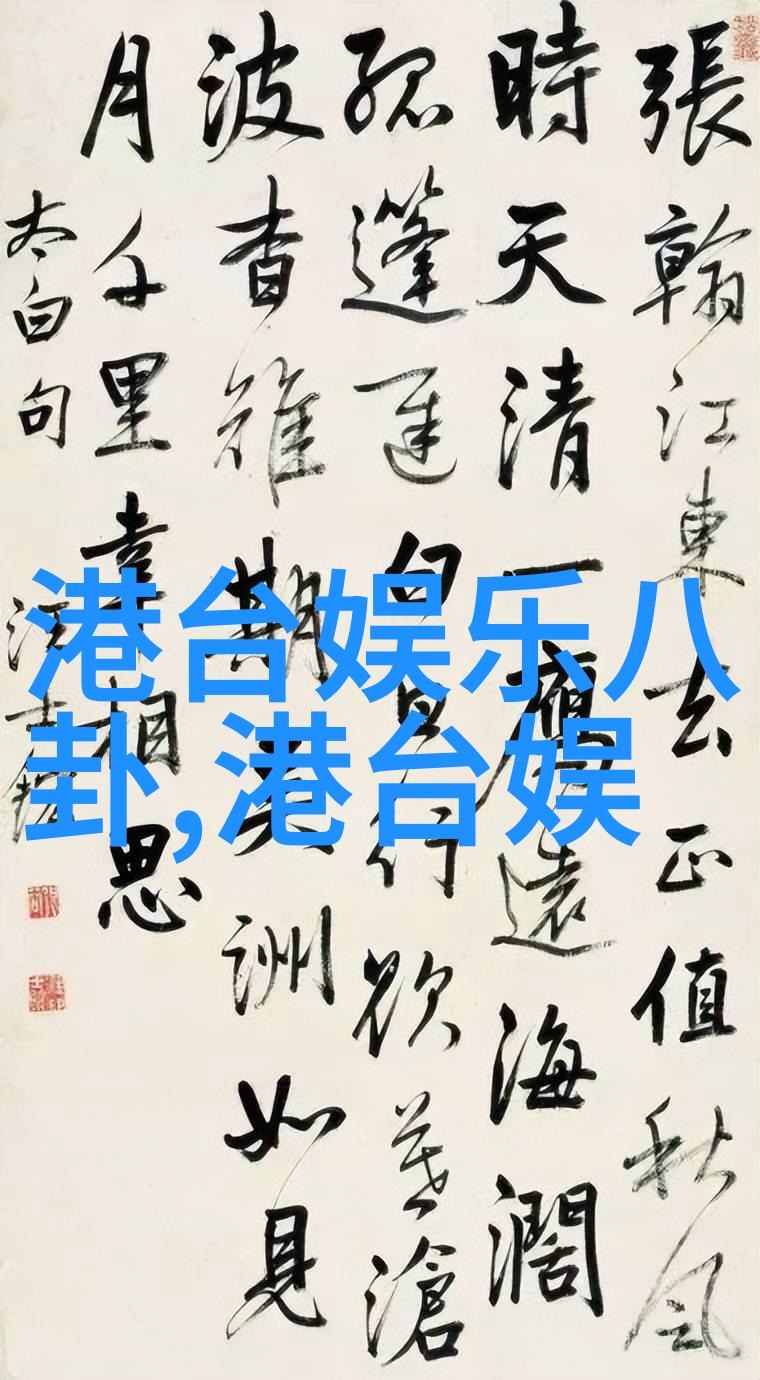 張翰江東去正值秋風
時天清一鴈遠海濶
孤篷遲白日行欲暮滄
波杳難期吴洲如見
月千里幸相思
太白句
汪士鋐
港台娱乐八
卦,港台娱